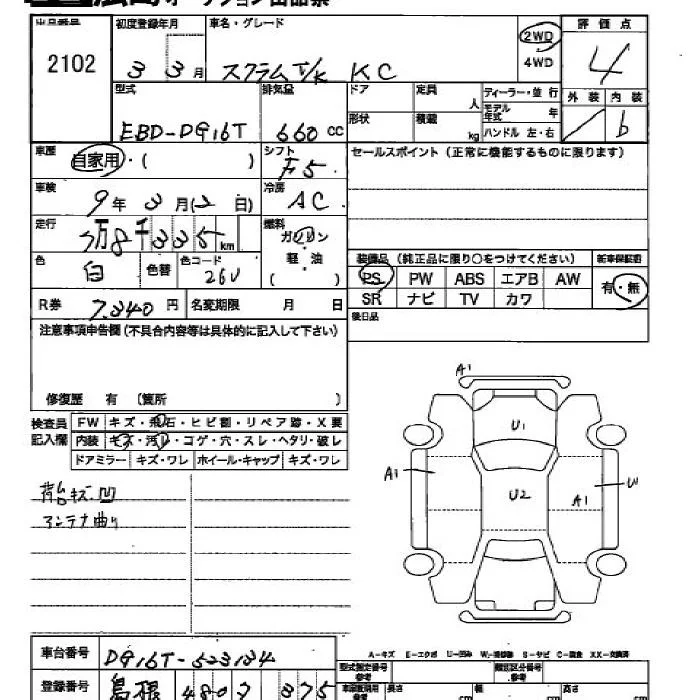 出品番号 初度登録年月 車名・グレード 2WD 評価点
2102 33月 スクラムT/K KC 4WD 4
型式 排気量 ドア 定員 人 ディーラー・並行 外装 内装
EBD-DG16T 660cc 形状 積載 kg モデル年式 年 b
ハンドル 左・右
車歴 自家用・( ) シフト F5 セールスポイント(正常に機能するものに限ります)
車検 9年3月(2日) 冷房 AC
走行 3万8千335km 燃料 ガソリン
軽・油
( )
装備品(純正品に限り○をつけてください) 新車保証書
色 白 色替 色コード 26U PS PW ABS エアB AW 有・無
SR ナビ TV カワ
R券 7,340円 名変期限 月 日 後日品
注意事項申告欄(不具合内容等は具体的に記入して下さい)
修復歴 有 〔箇所 〕
検査員 FW キズ・飛石・ヒビ割・リペア跡・X要
記入欄 内装 キズ・汚レ・コゲ・穴・スレ・ヘタリ・破レ
ドアミラー キズ・ワレ ホイール・キャップ キズ・ワレ
荷台キズ.凹
アンテナ曲り
A1
U1
A1 U2 A1 U1
車台番号 DG16T-523134
A-キズ E-エクボ U-凹み W-補修跡 S-サビ C-腐食 XX-交換済
登録番号 島根 480 375
型式指定番号 類別区分番号
長さ cm 幅 cm 高さ cm